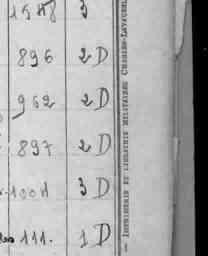 1588 3
896 2 D
962 2 D
897 2 D
1001 3 D
111. 1 D
— IMPRIMERIE ET LIBRAIRIE MILITAIRES CHARLES-LAVAUZEL